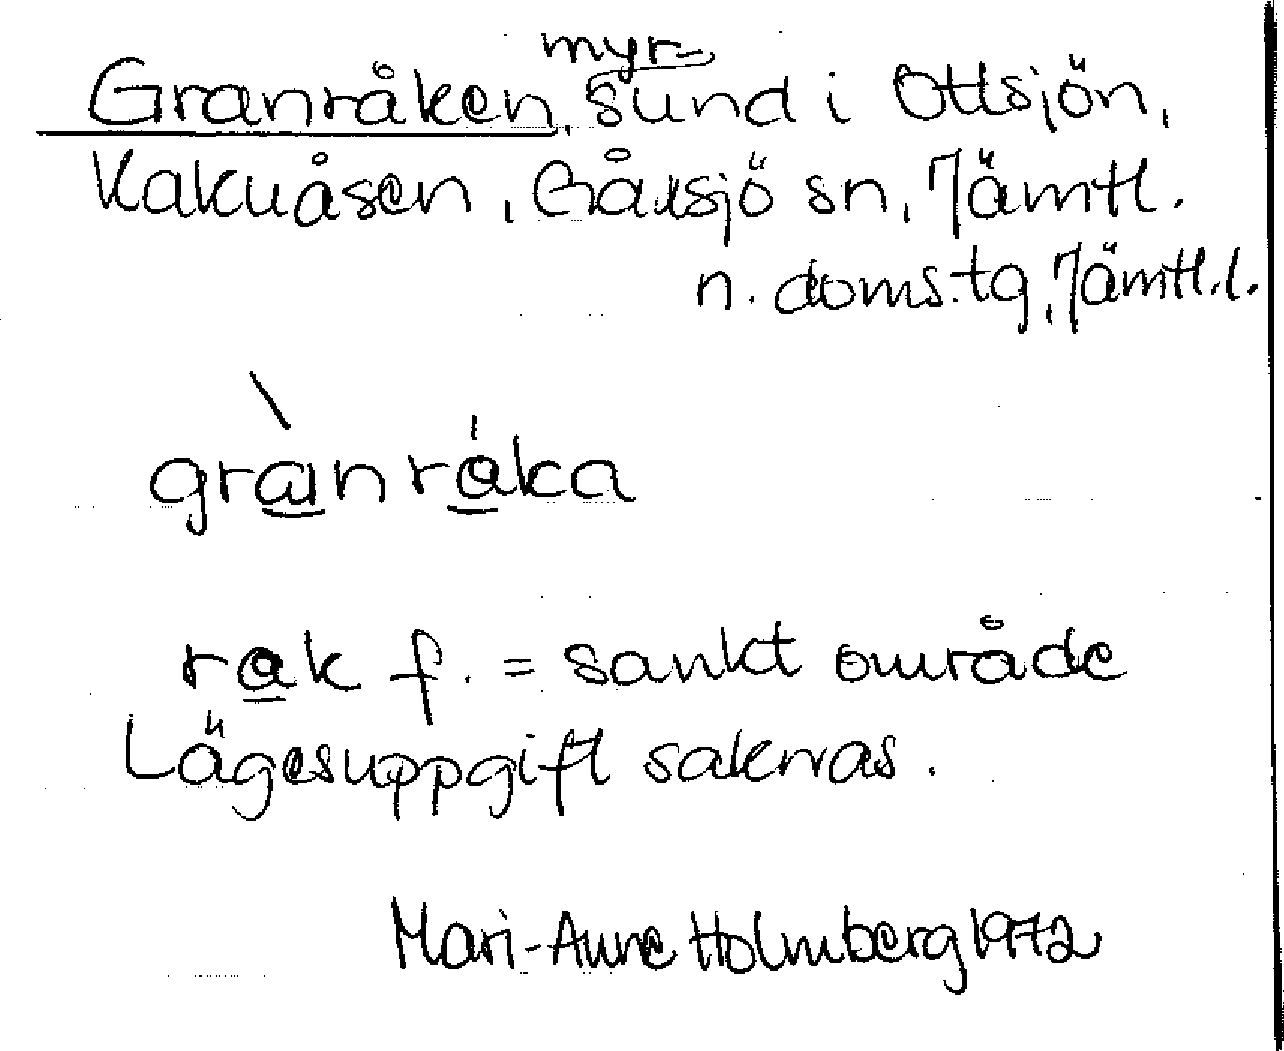 myr-
Granråken, sund i Ottsjön,
Kakuåsen, Gåxsjö sn, Jämtl.
n. doms.tg, Jämtl.l.
grànråka
råk f. = sankt område
Lägesuppgift saknas.
Mari-Anne Holmberg 1972